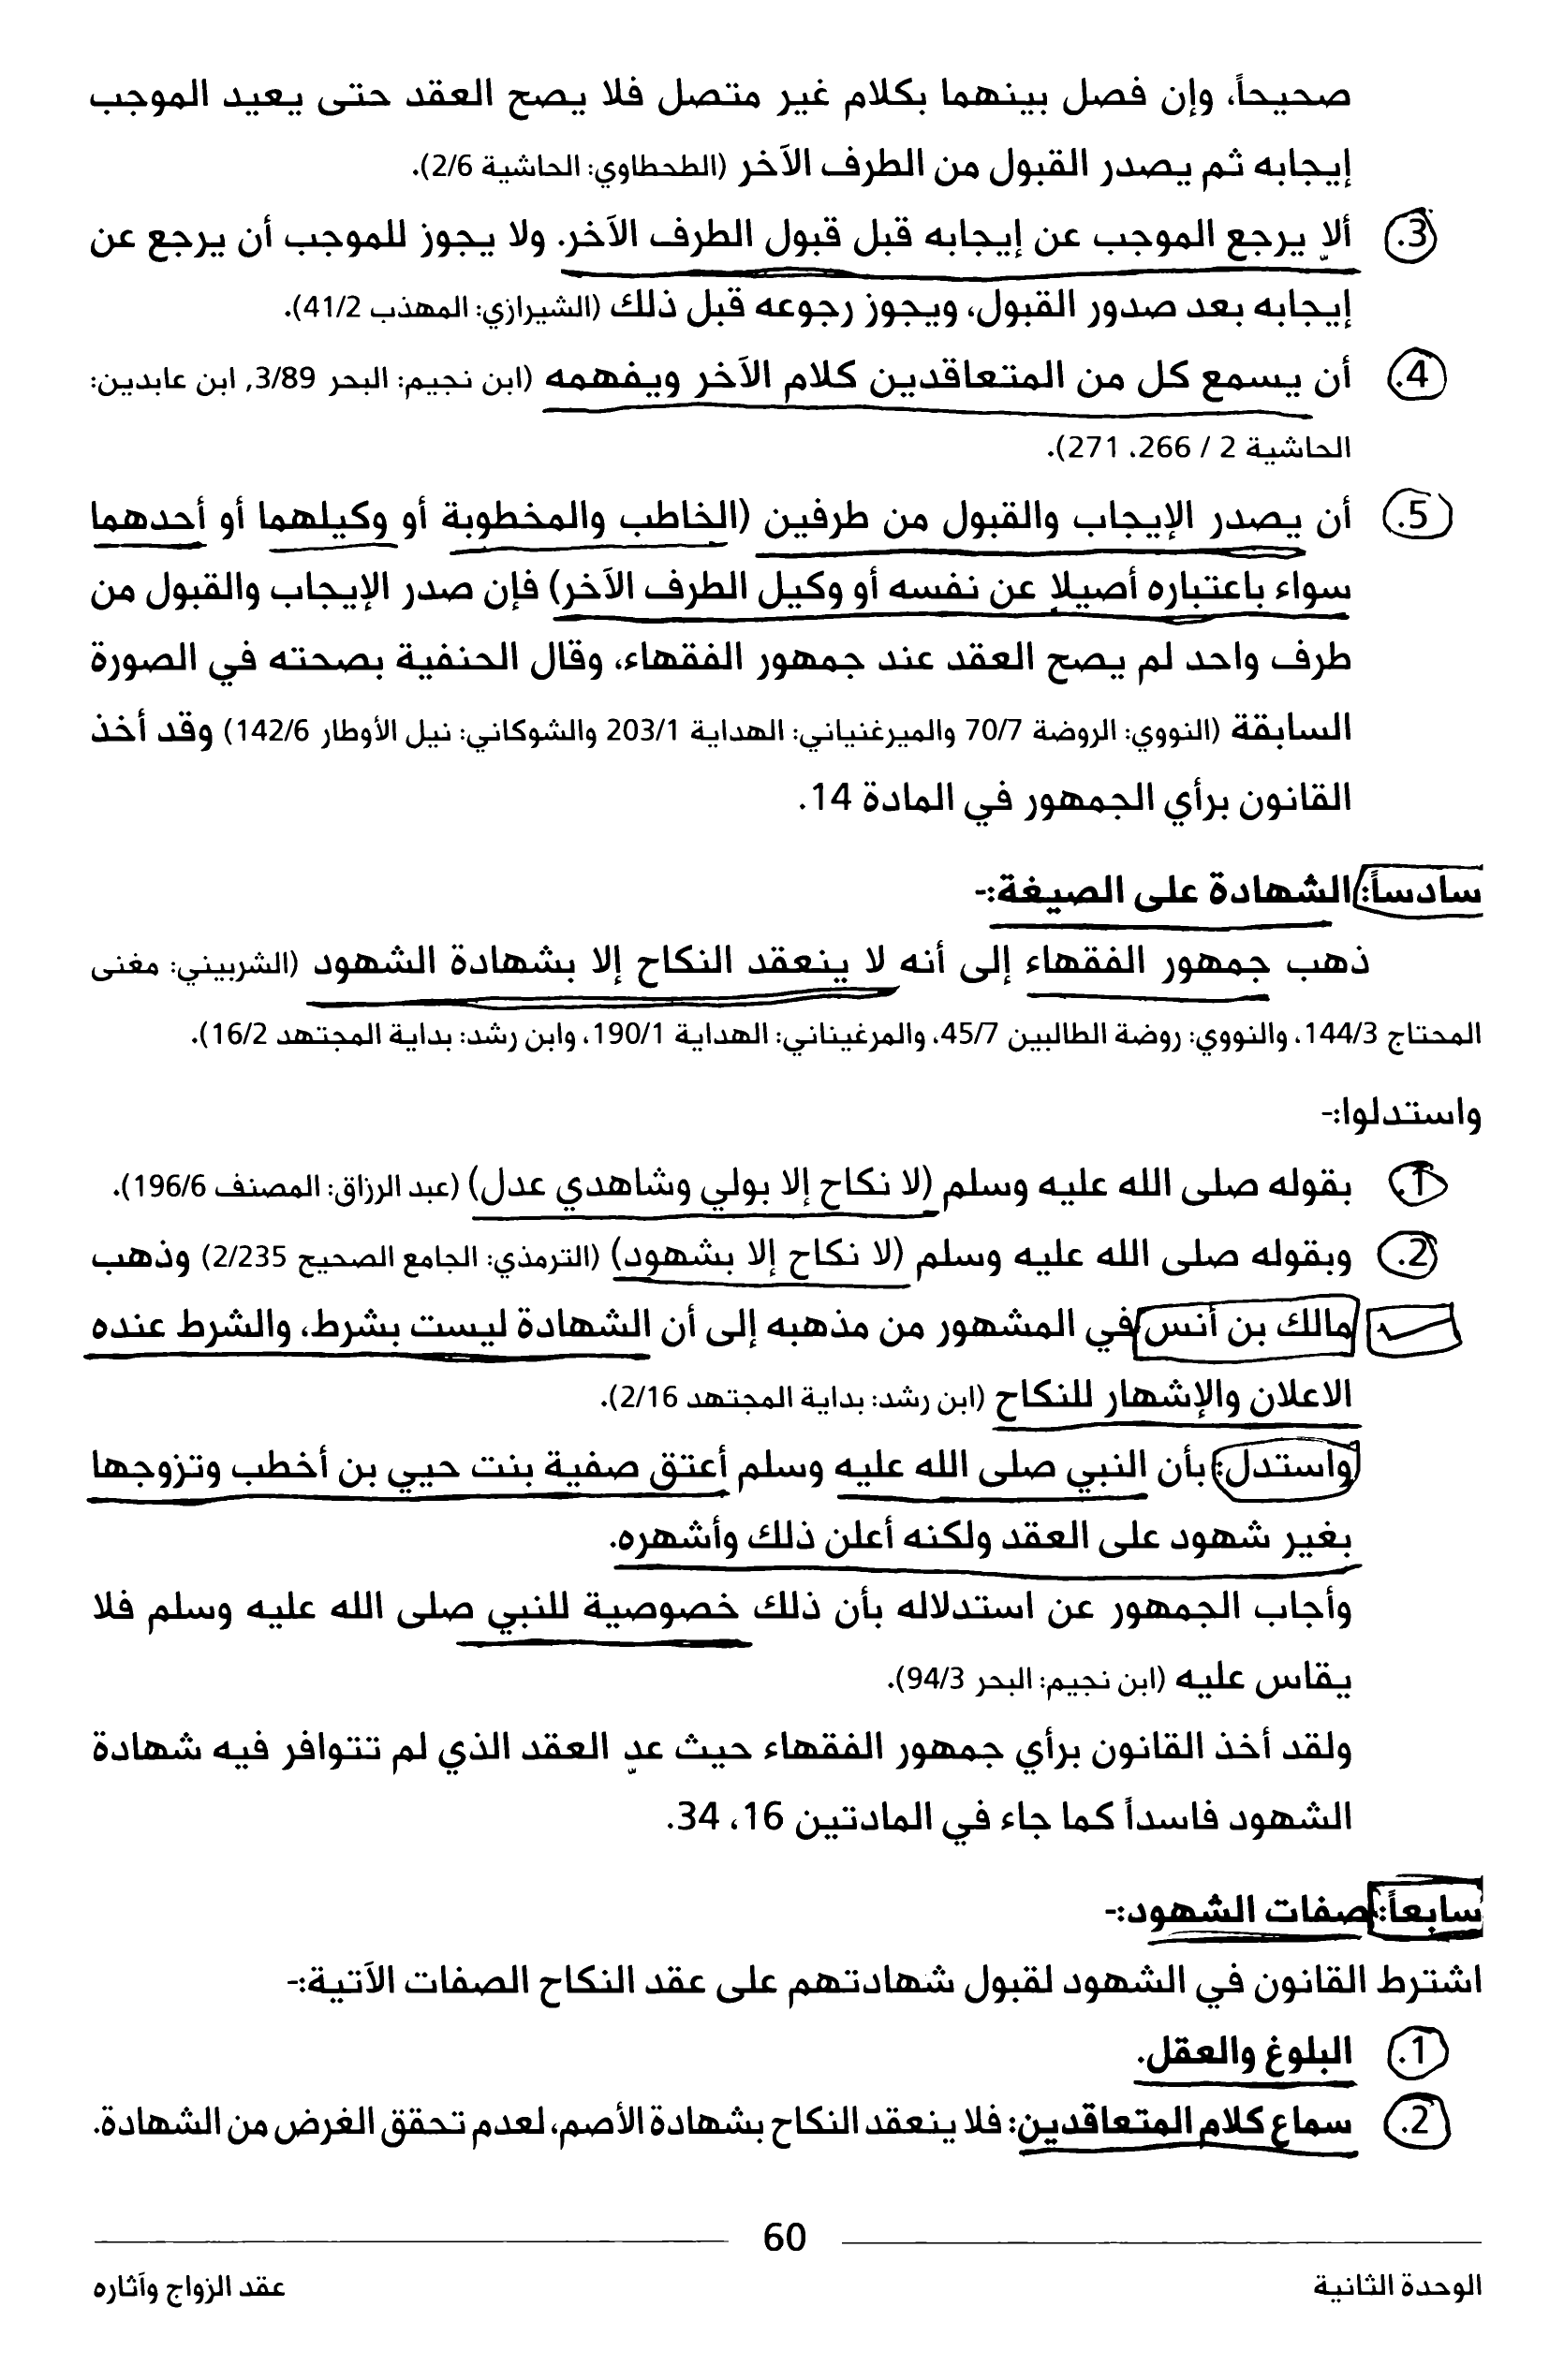 صحيحاً، وإن فصل بينهما بكلام غير متصل فلا يصح العقد حتى يعيد الموجب
إيجابه ثم يصدر القبول من الطرف الآخر (الطحطاوي: الحاشية 2/6).
3. ألاّ يرجع الموجب عن إيجابه قبل قبول الطرف الآخر. ولا يجوز للموجب أن يرجع عن
إيجابه بعد صدور القبول، ويجوز رجوعه قبل ذلك (الشيرازي: المهذب 41/2).
4. أن يسمع كل من المتعاقدين كلام الآخر ويفهمه (ابن نجيم: البحر 3/89, ابن عابدين:
الحاشية 2 / 266، 271).
5. أن يصدر الإيجاب والقبول من طرفين (الخاطب والمخطوبة أو وكيلهما أو أحدهما
سواء باعتباره أصيلا عن نفسه أو وكيل الطرف الآخر) فإن صدر الإيجاب والقبول من
طرف واحد لم يصح العقد عند جمهور الفقهاء، وقال الحنفية بصحته في الصورة
السابقة (النووي: الروضة 70/7 والميرغنياني: الهداية 203/1 والشوكاني: نيل الأوطار 142/6) وقد أخذ
القانون برأي الجمهور في المادة 14.
سادساً: الشهادة على الصيغة:-
ذهب جمهور الفقهاء إلى أنه لا ينعقد النكاح إلا بشهادة الشهود (الشربيني: مغنى
المحتاج 144/3، والنووي: روضة الطالبين 45/7، والمرغيناني: الهداية 190/1، وابن رشد: بداية المجتهد 16/2).
واستدلوا:-
1. بقوله صلى الله عليه وسلم (لا نكاح إلا بولي وشاهدي عدل) (عبد الرزاق: المصنف 196/6).
2. وبقوله صلى الله عليه وسلم (لا نكاح إلا بشهود) (الترمذي: الجامع الصحيح 2/235) وذهب
مالك بن أنس في المشهور من مذهبه إلى أن الشهادة ليست بشرط، والشرط عنده
الاعلان والإشهار للنكاح (ابن رشد: بداية المجتهد 2/16).
واستدل: بأن النبي صلى الله عليه وسلم أعتق صفية بنت حيي بن أخطب وتزوجها
بغير شهود على العقد ولكنه أعلن ذلك وأشهره.
وأجاب الجمهور عن استدلاله بأن ذلك خصوصية للنبي صلى الله عليه وسلم فلا
يقاس عليه (ابن نجيم: البحر 94/3).
ولقد أخذ القانون برأي جمهور الفقهاء حيث عدّ العقد الذي لم تتوافر فيه شهادة
الشهود فاسداً كما جاء في المادتين 16، 34.
سابعاً: صفات الشهود:-
اشترط القانون في الشهود لقبول شهادتهم على عقد النكاح الصفات الآتية:-
1. البلوغ والعقل.
2. سماع كلام المتعاقدين: فلا ينعقد النكاح بشهادة الأصم، لعدم تحقق الغرض من الشهادة.
60
الوحدة الثانية
عقد الزواج وآثاره